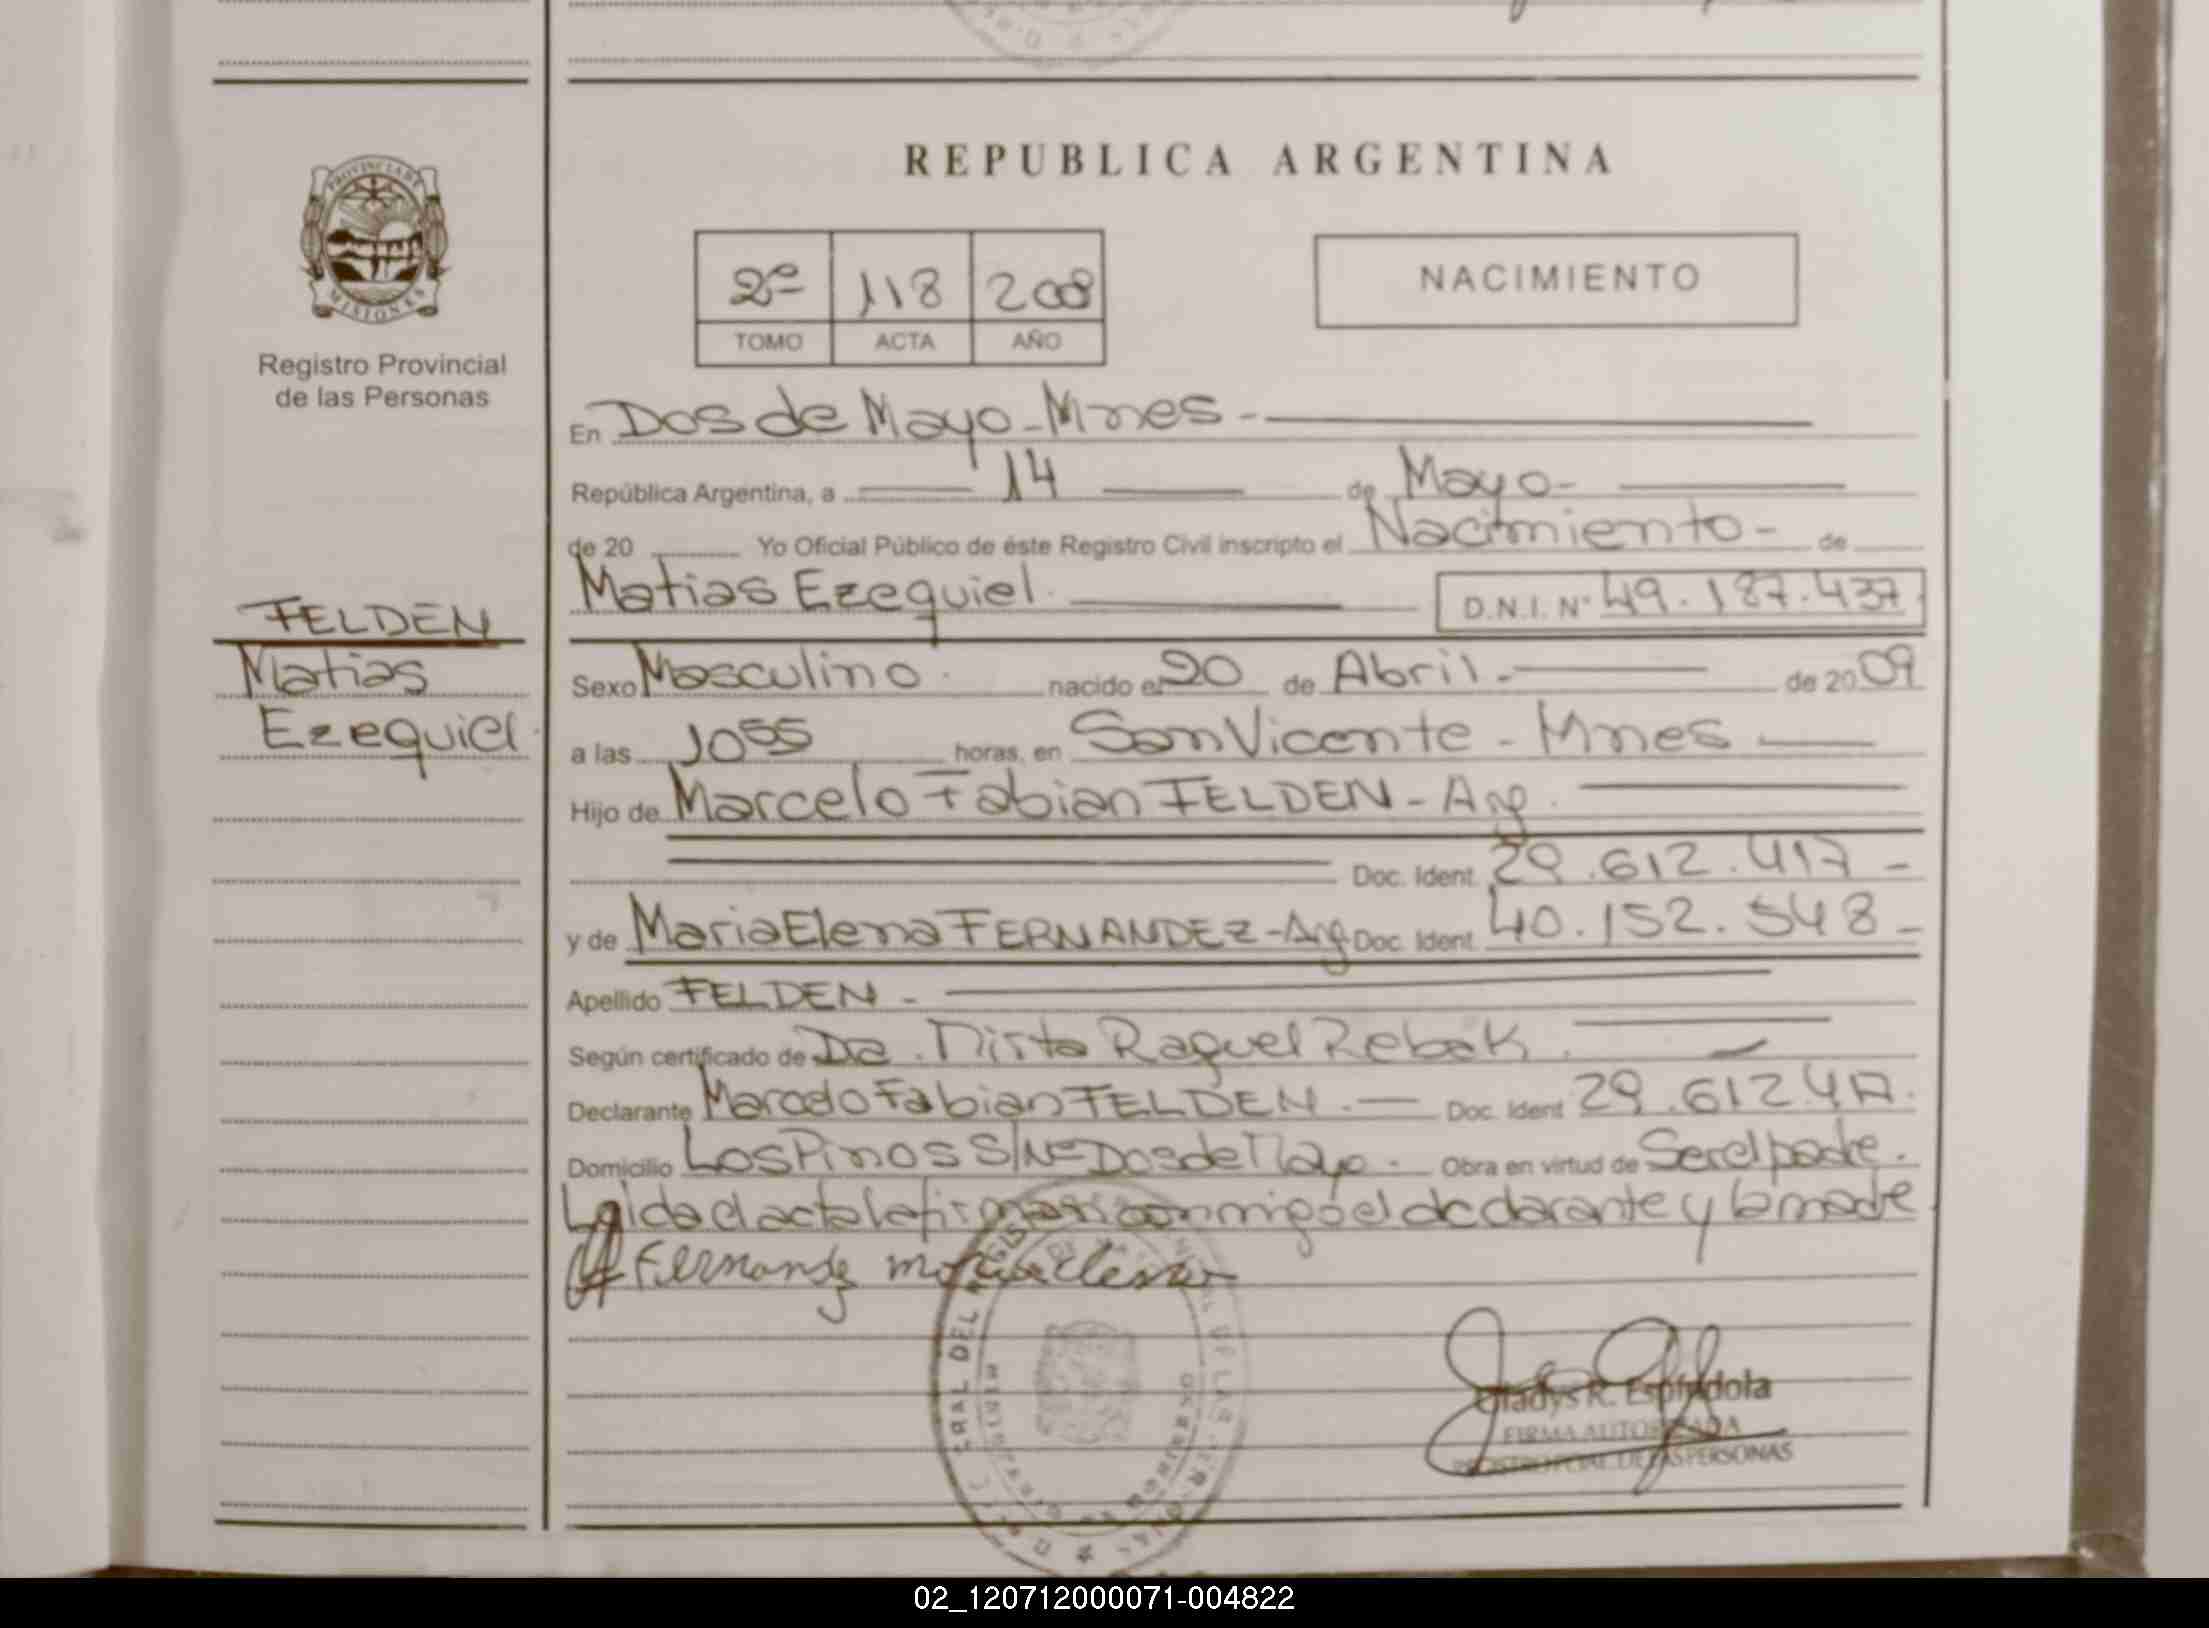 REPUBLICA ARGENTINA
PROVINCIA DE
MISIONES
Registro Provincial
de las Personas
2º 118 2008
TOMO ACTA AÑO
NACIMIENTO
En Dos de Mayo - Mnes -
República Argentina, a 14 de Mayo -
de 20 Yo Oficial Público de éste Registro Civil inscripto el Nacimiento - de
Matias Ezequiel. D.N.I. Nº 49.187.437.
FELDEN
Matias
Ezequiel.
Sexo Masculino. nacido el 20 de Abril. - de 2009
a las 10 55 horas, en San Vicente - Mnes
Hijo de Marcelo Fabian FELDEN - Arg.
Doc. Ident. 29.612.417 -
y de Maria Elena FERNANDEZ - Arg Doc. Ident. 40.152.548 -
Apellido FELDEN -
Según certificado de Dra. Mirta Raquel Rebak.
Declarante Marcelo Fabian FELDEN. - Doc. Ident 29.612.417.
Domicilio Los Pinos S/Nº Dos de Mayo. Obra en virtud de Ser el padre.
Leida el acta la firman conmigo el declarante y la madre
Fernandez maria elena
Gladys R. Espíndola
FIRMA AUTORIZADA
REGISTRO PCIAL. DE LAS PERSONAS
02_120712000071-004822